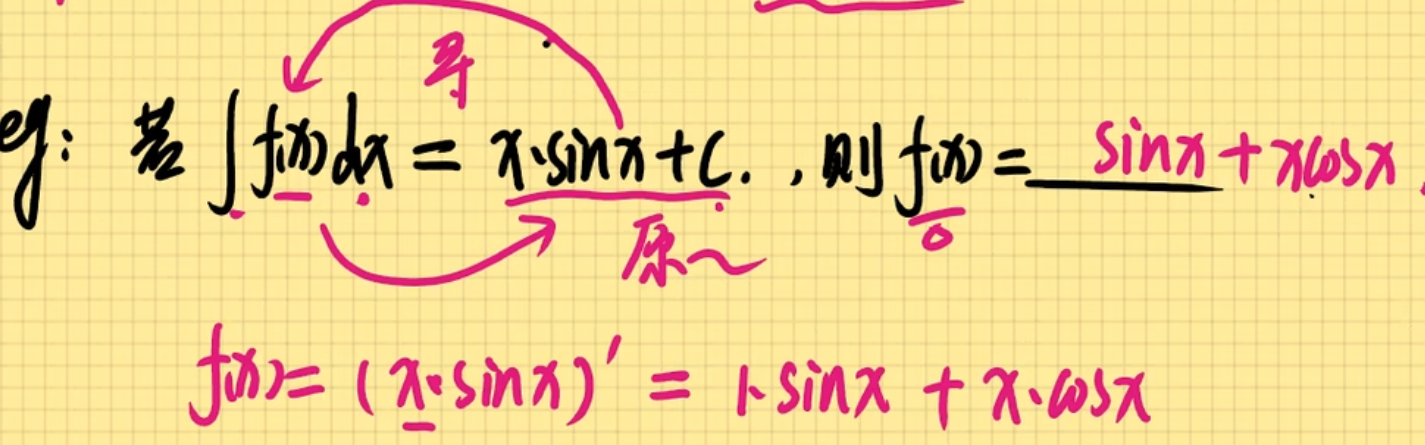 导
eg: 若 ∫f(x)dx = x·sinx+C. ,则 f(x)= sinx+xcosx.
原~
f(x)= (x·sinx)′ = 1·sinx + x·cosx